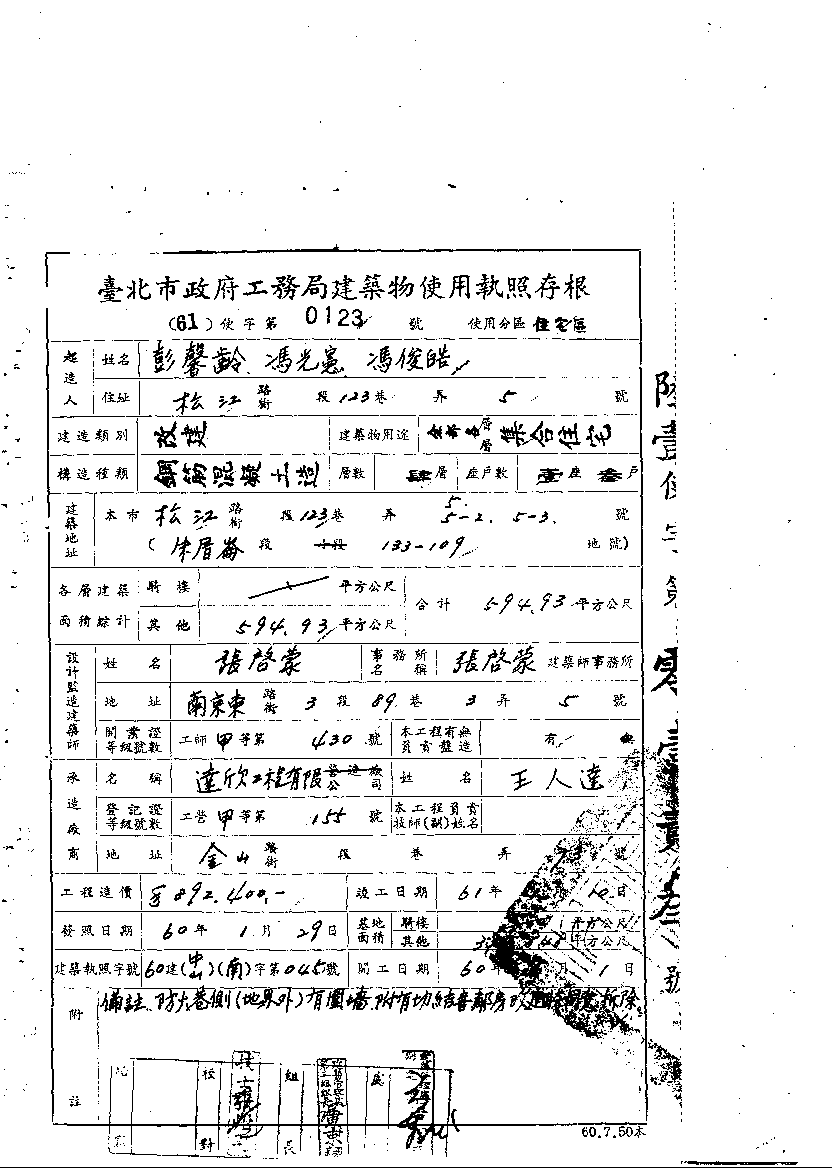 臺北市政府工務局建築物使用執照存根
(61)使字第0123號 使用分區住宅區
起造人 姓名 彭馨齡、馮光憲、馮俊皓
住址 松江路街 段123巷 弄5號
建造類別 改建 建築物用途 各層 層 集合住宅
構造種類 鋼筋混凝土造 層數 肆層 座戶數 壹座叁戶
建築地址 本市 松江路街 段123巷 弄5. 5-2. 5-3.號
(朱厝崙段 小段 133-109 地號)
各層建築面積綜計 騎樓 平方公尺 合計 594.93平方公尺
其他 594.93平方公尺
設計監造建築師 姓名 張啓蒙 事務所名稱 張啓蒙 建築師事務所
地址 南京東路街 3段89巷3弄5號
開業證等級號數 工師甲等第430號 本工程有無負責監造 有 無
承造廠商 名稱 達欣工程有限公司 姓名 王人達
登記證等級號數 工營甲等第155號 本工程負責技師(副)姓名
地址 金山路街 段 巷 弄 號
工程造價 892.400.- 竣工日期 61年 10日
發照日期 60年1月29日 基地面積 騎樓 平方公尺
其他 平方公尺
建築執照字號 60建( )(南)字第045號 開工日期 60年 月1日
附註 備註 防火巷側(地界外)有圍墻 拆除
校對 組長 處
60.7.50本
陸壹使字第零壹貳叁號